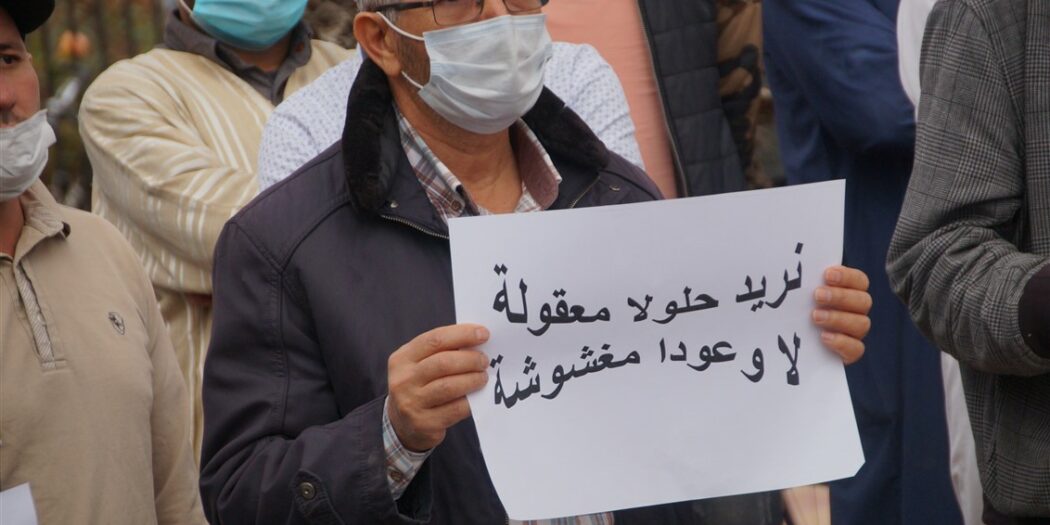 نريد حلولا معقولة
لا وعودا مغشوشة